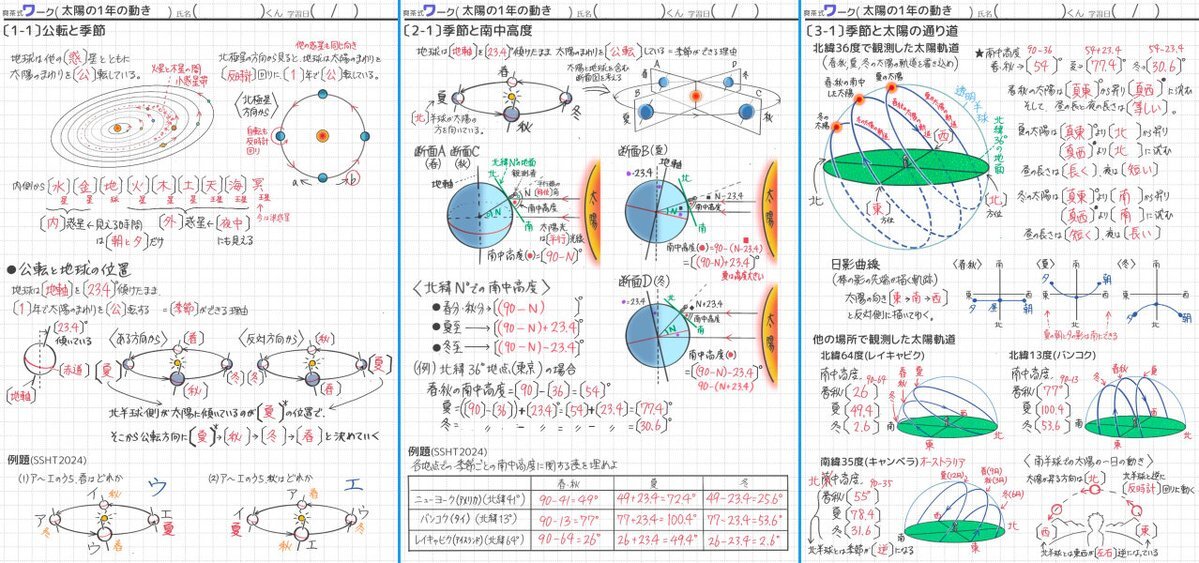 育茶式ワーク(太陽の1年の動き )氏名( )くん 学習日( / )
〔1-1〕公転と季節
地球は他の〔惑〕星とともに
太陽のまわりを〔公〕転している。
火星と木星の間
小惑星帯
他の惑星も同じ向き
北極星の方向から見ると、地球は太陽のまわりを
〔反時計〕回りに〔1〕年で〔公〕転している。
〈北極星方向から〉
自転も
反時計
回り
a b
内側から〔水〕〔金〕〔地〕〔火〕〔木〕〔土〕〔天〕〔海〕冥
星 星 球 星 星 星 王星 王星 王星
〔内〕惑星←見える時間は〔朝と夕〕だけ
〔外〕惑星←〔夜中〕にも見える
●公転と地球の位置
地球は〔地軸〕を〔23.4〕°傾けたまま
〔1〕年で太陽のまわりを〔公〕転する =〔季節〕ができる理由
〔23.4〕°
傾いている
〔赤道〕
〔地軸〕
〈ある方向から〉
〔春〕
〔夏〕 〔冬〕
〔秋〕
〈反対方向から〉
〔秋〕
〔冬〕 〔夏〕
〔春〕
北半球側が太陽に傾いているのが〔夏〕の位置で、
そこから公転方向に〔夏〕→〔秋〕→〔冬〕→〔春〕と決めていく
例題(SSHT2024)
(1)ア〜エのうち、春はどれか ウ
イ 秋
ア 冬
エ 夏
ウ 春
(2)ア〜エのうち、秋はどれか エ
ア 春
イ 夏
ウ 冬
エ 秋
育茶式ワーク(太陽の1年の動き )氏名( )くん 学習日( / )
〔2-1〕季節と南中高度
地球は〔地軸〕を〔23.4〕°傾けたまま 太陽のまわりを〔公転〕している=季節ができる理由
春
夏 冬
秋
〔北〕半球が太陽の
方を向いている。
太陽と地球を含む
断面図を考える
A 春 D
B C
夏 秋 冬
断面A 断面C
(春) (秋)
地軸
北緯N°の地面
観測者
北
N
南中高度
南
太陽光
は〔平行〕光線
太陽
南中高度(●)=〔90-N〕°
断面B(夏)
地軸
23.4
北
N-23.4
南中高度
南
太陽
南中高度(●)=〔90-(N-23.4)〕°
=〔(90-N)+23.4〕°
断面D(冬)
23.4
北
N+23.4
南中高度
南
太陽
南中高度(●)
=〔(90-N)-23.4〕°
90-(N+23.4)
〈北緯N°での南中高度〉
●春分・秋分→〔(90-N)〕
●夏至→〔(90-N)+23.4〕
●冬至→〔(90-N)-23.4〕
(例)北緯36°地点(東京)の場合
春秋の南中高度=〔90〕-〔36〕=〔54〕°
夏=(〔90〕-〔36〕)+〔23.4〕°=〔54〕+〔23.4〕=〔77.4〕°
冬= 〃 - 〃 = 〃 - 〃 =〔30.6〕°
例題(SSHT2024)
各地点での季節ごとの南中高度に関する表を埋めよ
春・秋 夏 冬
ニューヨーク(アメリカ)(北緯41°) 90-41=49° 49+23.4=72.4° 49-23.4=25.6°
バンコク(タイ)(北緯13°) 90-13=77° 77+23.4=100.4° 77-23.4=53.6°
レイキャビク(アイスランド)(北緯64°) 90-64=26° 26+23.4=49.4° 26-23.4=2.6°
育茶式ワーク(太陽の1年の動き )氏名( )くん 学習日( / )
〔3-1〕季節と太陽の通り道
北緯36度で観測した太陽軌道
(春秋、夏、冬の太陽の軌道を書き込め)
春秋の南中
した太陽
夏の太陽
冬の
太陽
透明半球
北緯36°の地面
〔西〕
〔南〕
〔東〕
〔北〕
方位
★南中高度 90-36 54+23.4 54-23.4
春秋→〔54〕° 夏→〔77.4〕° 冬→〔30.6〕°
春秋の太陽は〔真東〕から昇り〔真西〕に沈む
そして、昼の長さと夜の長さは〔等しい〕。
夏の太陽は〔真東〕より〔北〕から昇り
〔真西〕より〔北〕に沈む
昼の長さは〔長く〕、夜は〔短い〕
冬の太陽は〔真東〕より〔南〕から昇り
〔真西〕より〔南〕に沈む
昼の長さは〔短く〕、夜は〔長い〕
日影曲線
(棒の影の先端が描く軌跡)
太陽の向き〔東→南→西〕
と反対側に描いてゆく。
〈春秋〉 南 東 西 北 夕 昼 朝
〈夏〉 南 東 西 北 夕 朝
〈冬〉 南 東 西 北 夕 朝
夏の朝と夕の影は南にできる
他の場所で観測した太陽軌道
北緯64度(レイキャビク)
南中高度 90-64
春秋〔26〕°
夏〔49.4〕
冬〔2.6〕
春秋 夏 冬 南 東 西 北
北緯13度(バンコク)
南中高度 90-13
春秋〔77〕°
夏〔100.4〕
冬〔53.6〕
冬 春秋 夏 南 東 西 北
南緯35度(キャンベラ)オーストラリア
北中高度 90-35
春秋〔55〕°
夏〔78.4〕
冬〔31.6〕
北半球とは季節が〔逆〕になる
夏(12月) 春(9月) 秋(3月) 冬(6月)
南 東 西 北
〈南半球での太陽の一日の動き〉
太陽が昇る方向は〔北〕 北半球と逆に
〔反時計〕回りに動く
〔西〕 〔東〕
北半球とは東西が〔左右〕逆になっている